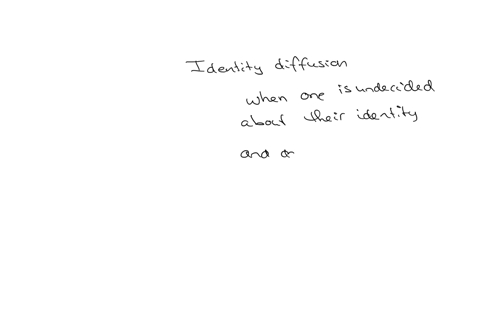 Identity diffusion
when one is undecided
about their identity
and